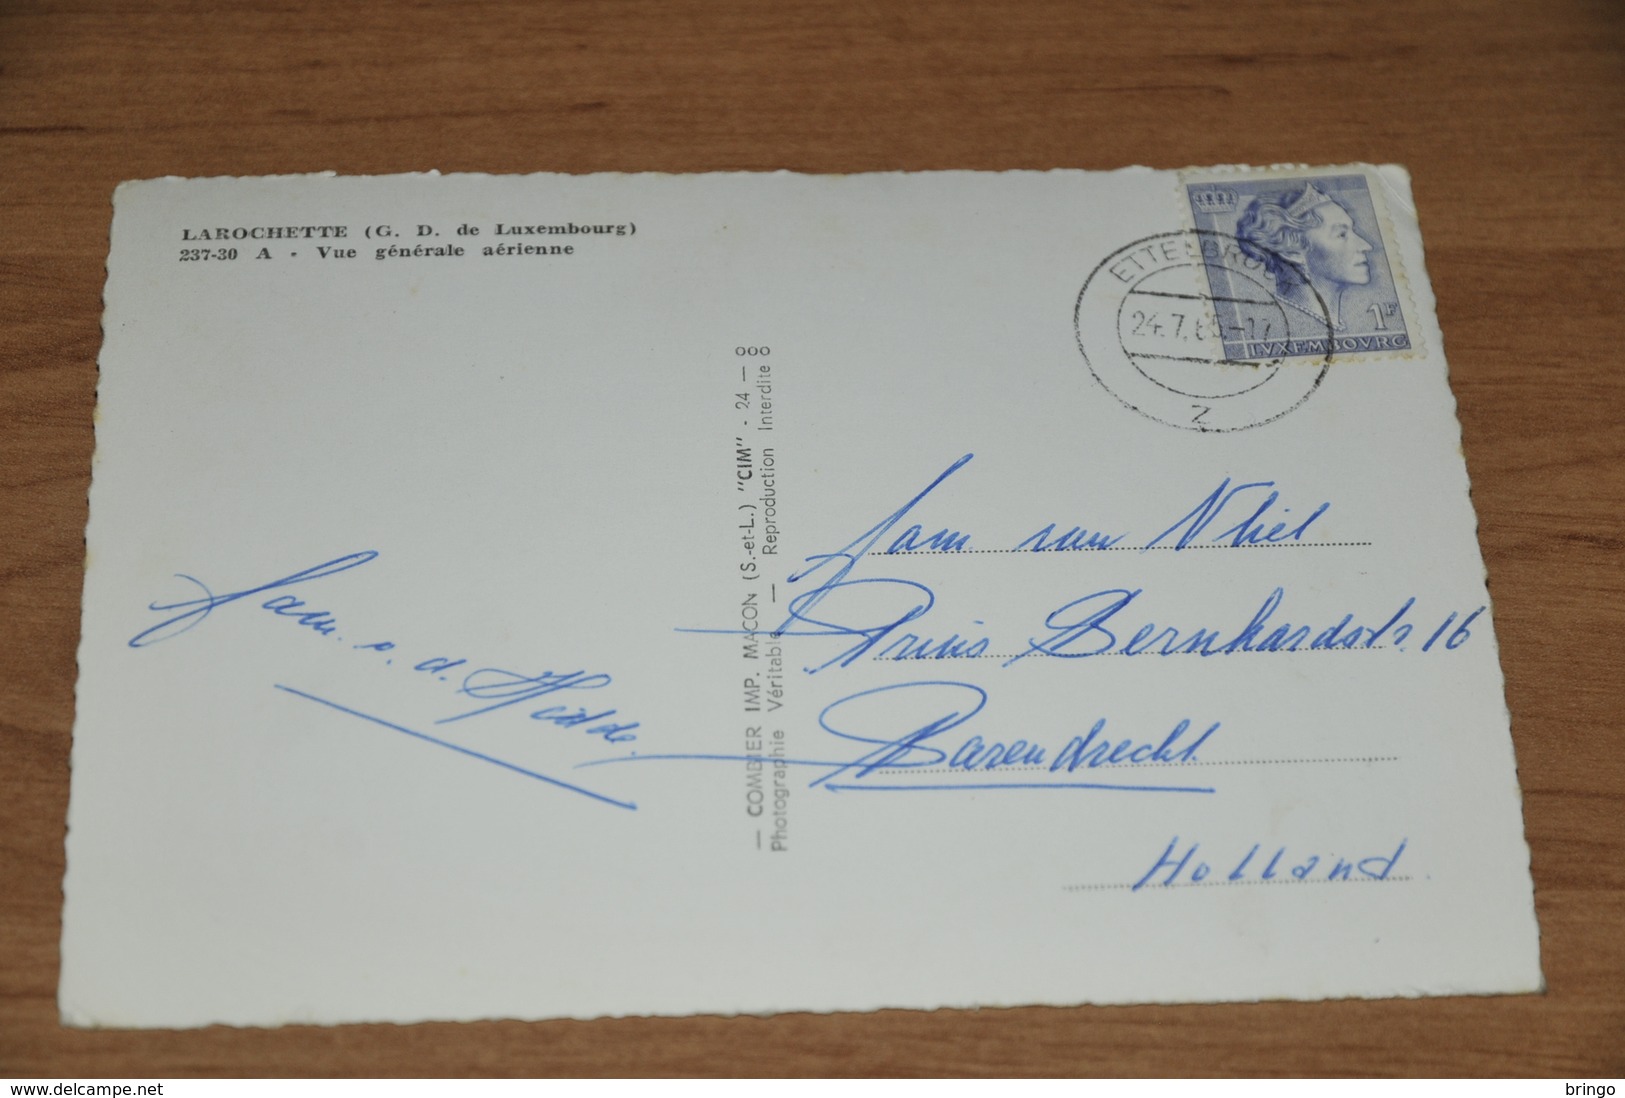 LAROCHETTE (G. D. de Luxembourg)
237-30 A - Vue générale aérienne
ETTELBRUCK
24.7.65.-17
2
1F
LVXEMBOVRG
— COMBIER IMP. MACON (S.-et-L.) "CIM" - 24 — ooo
Photographie Véritable — Reproduction Interdite 8
Fam. v. d. Hidde.
Fam. van Vliet
Prins Bernhardstr. 16
Barendrecht.
Holland.
delcampe.net
bringo